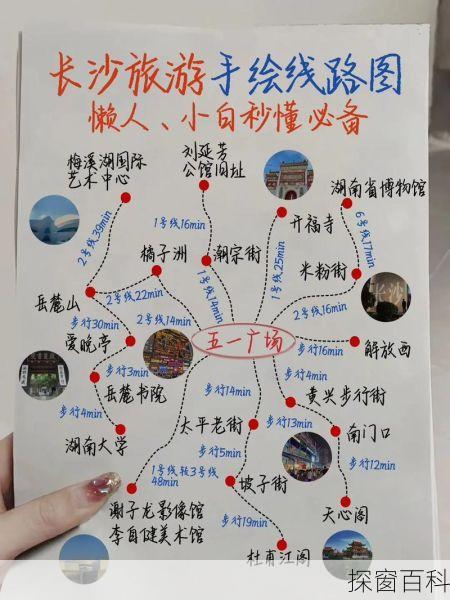 长沙旅游手绘线路图
懒人、小白秒懂必备
梅溪湖国际
艺术中心
刘延芳
公馆旧址
开福寺
湖南省博物馆
2号线39min
1号线16min
6号线17min
橘子洲
潮宗街
1号线25min
米粉街
岳麓山
2号线22min
1号线14min
2号线16min
步行30min
2号线14min
爱晚亭
五一广场
步行16min
解放西
步行3min
岳麓书院
步行13min
步行14min
步行4min
步行4min
黄兴步行街
湖南大学
太平老街
步行13min
南门口
1号线转3号线
48min
步行5min
步行12min
坡子街
谢子龙影像馆
李自健美术馆
步行19min
天心阁
杜甫江阁
探窗百科